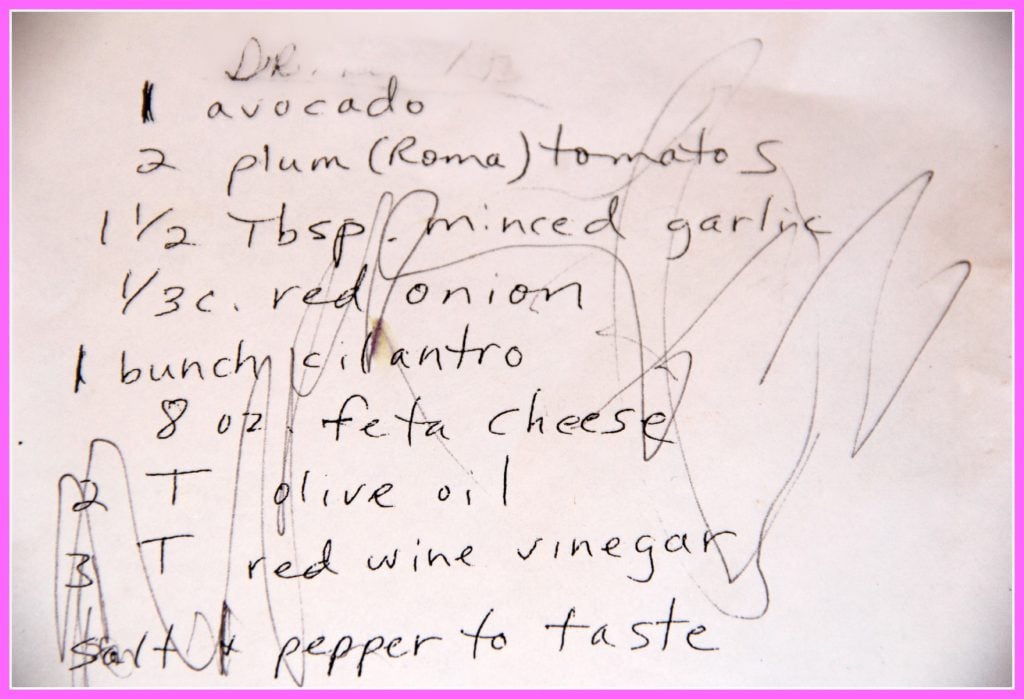 1 avocado
2 plum (Roma) tomatos
1 1/2 Tbsp. minced garlic
1/3 c. red onion
1 bunch cilantro
8 oz. feta cheese
2 T olive oil
3 T red wine vinegar
salt + pepper to taste